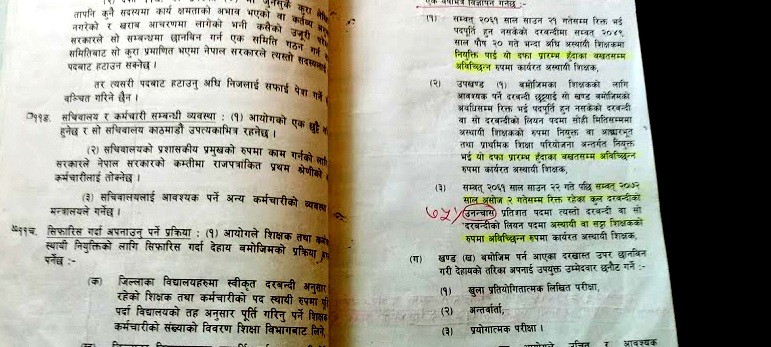 तापनि कुनै सदस्यमा कार्य क्षमताको अभाव भएको वा कर्तव्य
नगरेको र खराब आचरणमा लागेको भनी कसैको उजूरी
सरकारले सो सम्बन्धमा छानबिन गर्न एक समिति गठन गर्न
समितिबाट सो कुरा प्रमाणित भएमा नेपाल सरकारले त्यस्तो
पदबाट हटाउन सक्नेछ ।
तर त्यसरी पदबाट हटाउनु अघि निजलाई सफाई पेश गर्ने
बञ्चित गरिने छैन ।
सचिवालय र कर्मचारी सम्बन्धी व्यवस्था : (१) आयोगको एक छुट्टै
हुनेछ र सो सचिवालय काठमाडौं उपत्यकाभित्र रहनेछ ।
(२) सचिवालयको प्रशासकीय प्रमुखको रुपमा काम गर्नको
सरकारले नेपाल सरकारको कम्तीमा राजपत्रांकित प्रथम श्रेणीको
कर्मचारीलाई तोक्नेछ ।
(३) सचिवालयलाई आवश्यक पर्ने अन्य कर्मचारीको व्यवस्था
मन्त्रालयले गर्नेछ ।
सिफारिस गर्दा अपनाउनु पर्ने प्रक्रिया : (१) आयोगले शिक्षक तथा
स्थायी नियुक्तिको लागि सिफारिस गर्दा देहाय बमोजिमको प्रक्रिया
पर्नेछ :-
(क) जिल्लाका विद्यालयहरुमा स्वीकृत दरबन्दी अनुसार
रहेको शिक्षक तथा कर्मचारीको पद स्थायी रुपमा
पर्दा विद्यालयको तह अनुसार पूर्ति गरिनु पर्ने
कर्मचारीको संख्याको विवरण शिक्षा विभागबाट
विज्ञापन गर्नेछ :-
(१) सम्वत् २०६१ साल साउन २१ गतेसम्म रिक्त भई
पदपूर्ति हुन नसकेको दरबन्दीमा सम्वत् २०४९
साल पौष २० गते भन्दा अघि अस्थायी शिक्षकमा
नियुक्ति पाई यो दफा प्रारम्भ हुँदाका बखतसम्म
अविच्छिन्न रुपमा कार्यरत अस्थायी शिक्षक,
(२) उपखण्ड (१) बमोजिमका शिक्षकको लागि
आवश्यक पर्ने दरबन्दी छुट्याई सो खण्ड बमोजिमको
अवधिसम्म रिक्त भई पदपूर्ति हुन नसकेको दरबन्दी
वा सो दरबन्दीको लियन पदमा सोही मितिसम्ममा
अस्थायी शिक्षकको रुपमा नियुक्त वा आधारभूत
तथा प्राथमिक शिक्षा परियोजना अन्तर्गत नियुक्त
भई यो दफा प्रारम्भ हुँदाका बखतसम्म अविच्छिन्न
रुपमा कार्यरत अस्थायी शिक्षक,
(३) सम्वत् २०६१ साल साउन २२ गते पछि सम्वत् २०७२
साल असोज २ गतेसम्म रिक्त रहेका कूल दरबन्दीको
उनन्चास प्रतिशत पदमा त्यस्तो दरबन्दी वा सो
दरबन्दीको लियन पदमा अस्थायी वा सट्टा शिक्षकको
रुपमा अविच्छिन्न रुपमा कार्यरत अस्थायी शिक्षक,
(ग) खण्ड (ख) बमोजिम पर्न आएका दरखास्त उपर छानबिन
गरी देहायको तरिका अपनाई उपयुक्त उम्मेदवार छनौट गर्ने :-
(१) खुला प्रतियोगितात्मक लिखित परीक्षा,
(२) अन्तर्वार्ता,
(३) प्रयोगात्मक परीक्षा ।